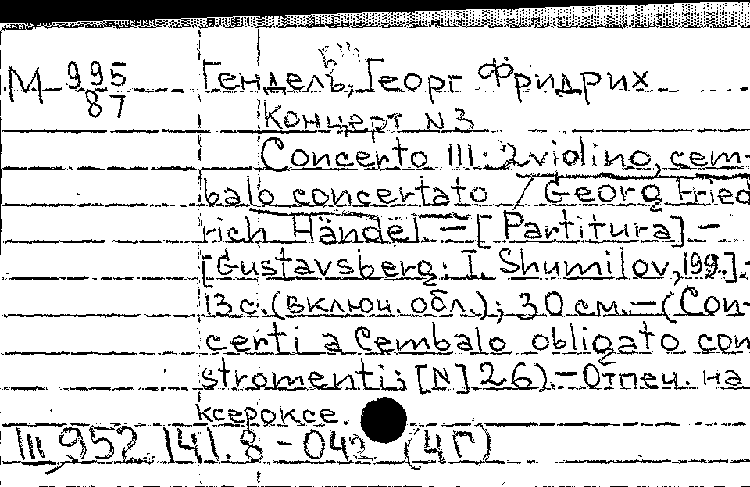 М 995
87
Гендель, Георг Фридрих
Концерт N 3
Concerto III: 2 violino, cem-
balo concertato / Georg Fried
rich Händel. — [Partitura] —
[Gustavsberg: I. Shumilov, 199.].-
13 с. (включ. обл.); 30 см. — (Con-
certi a Cembalo obligato con
stromenti; [N] 26). — Отпеч. на
ксероксе.
III 952.141.8-042 (4Г)